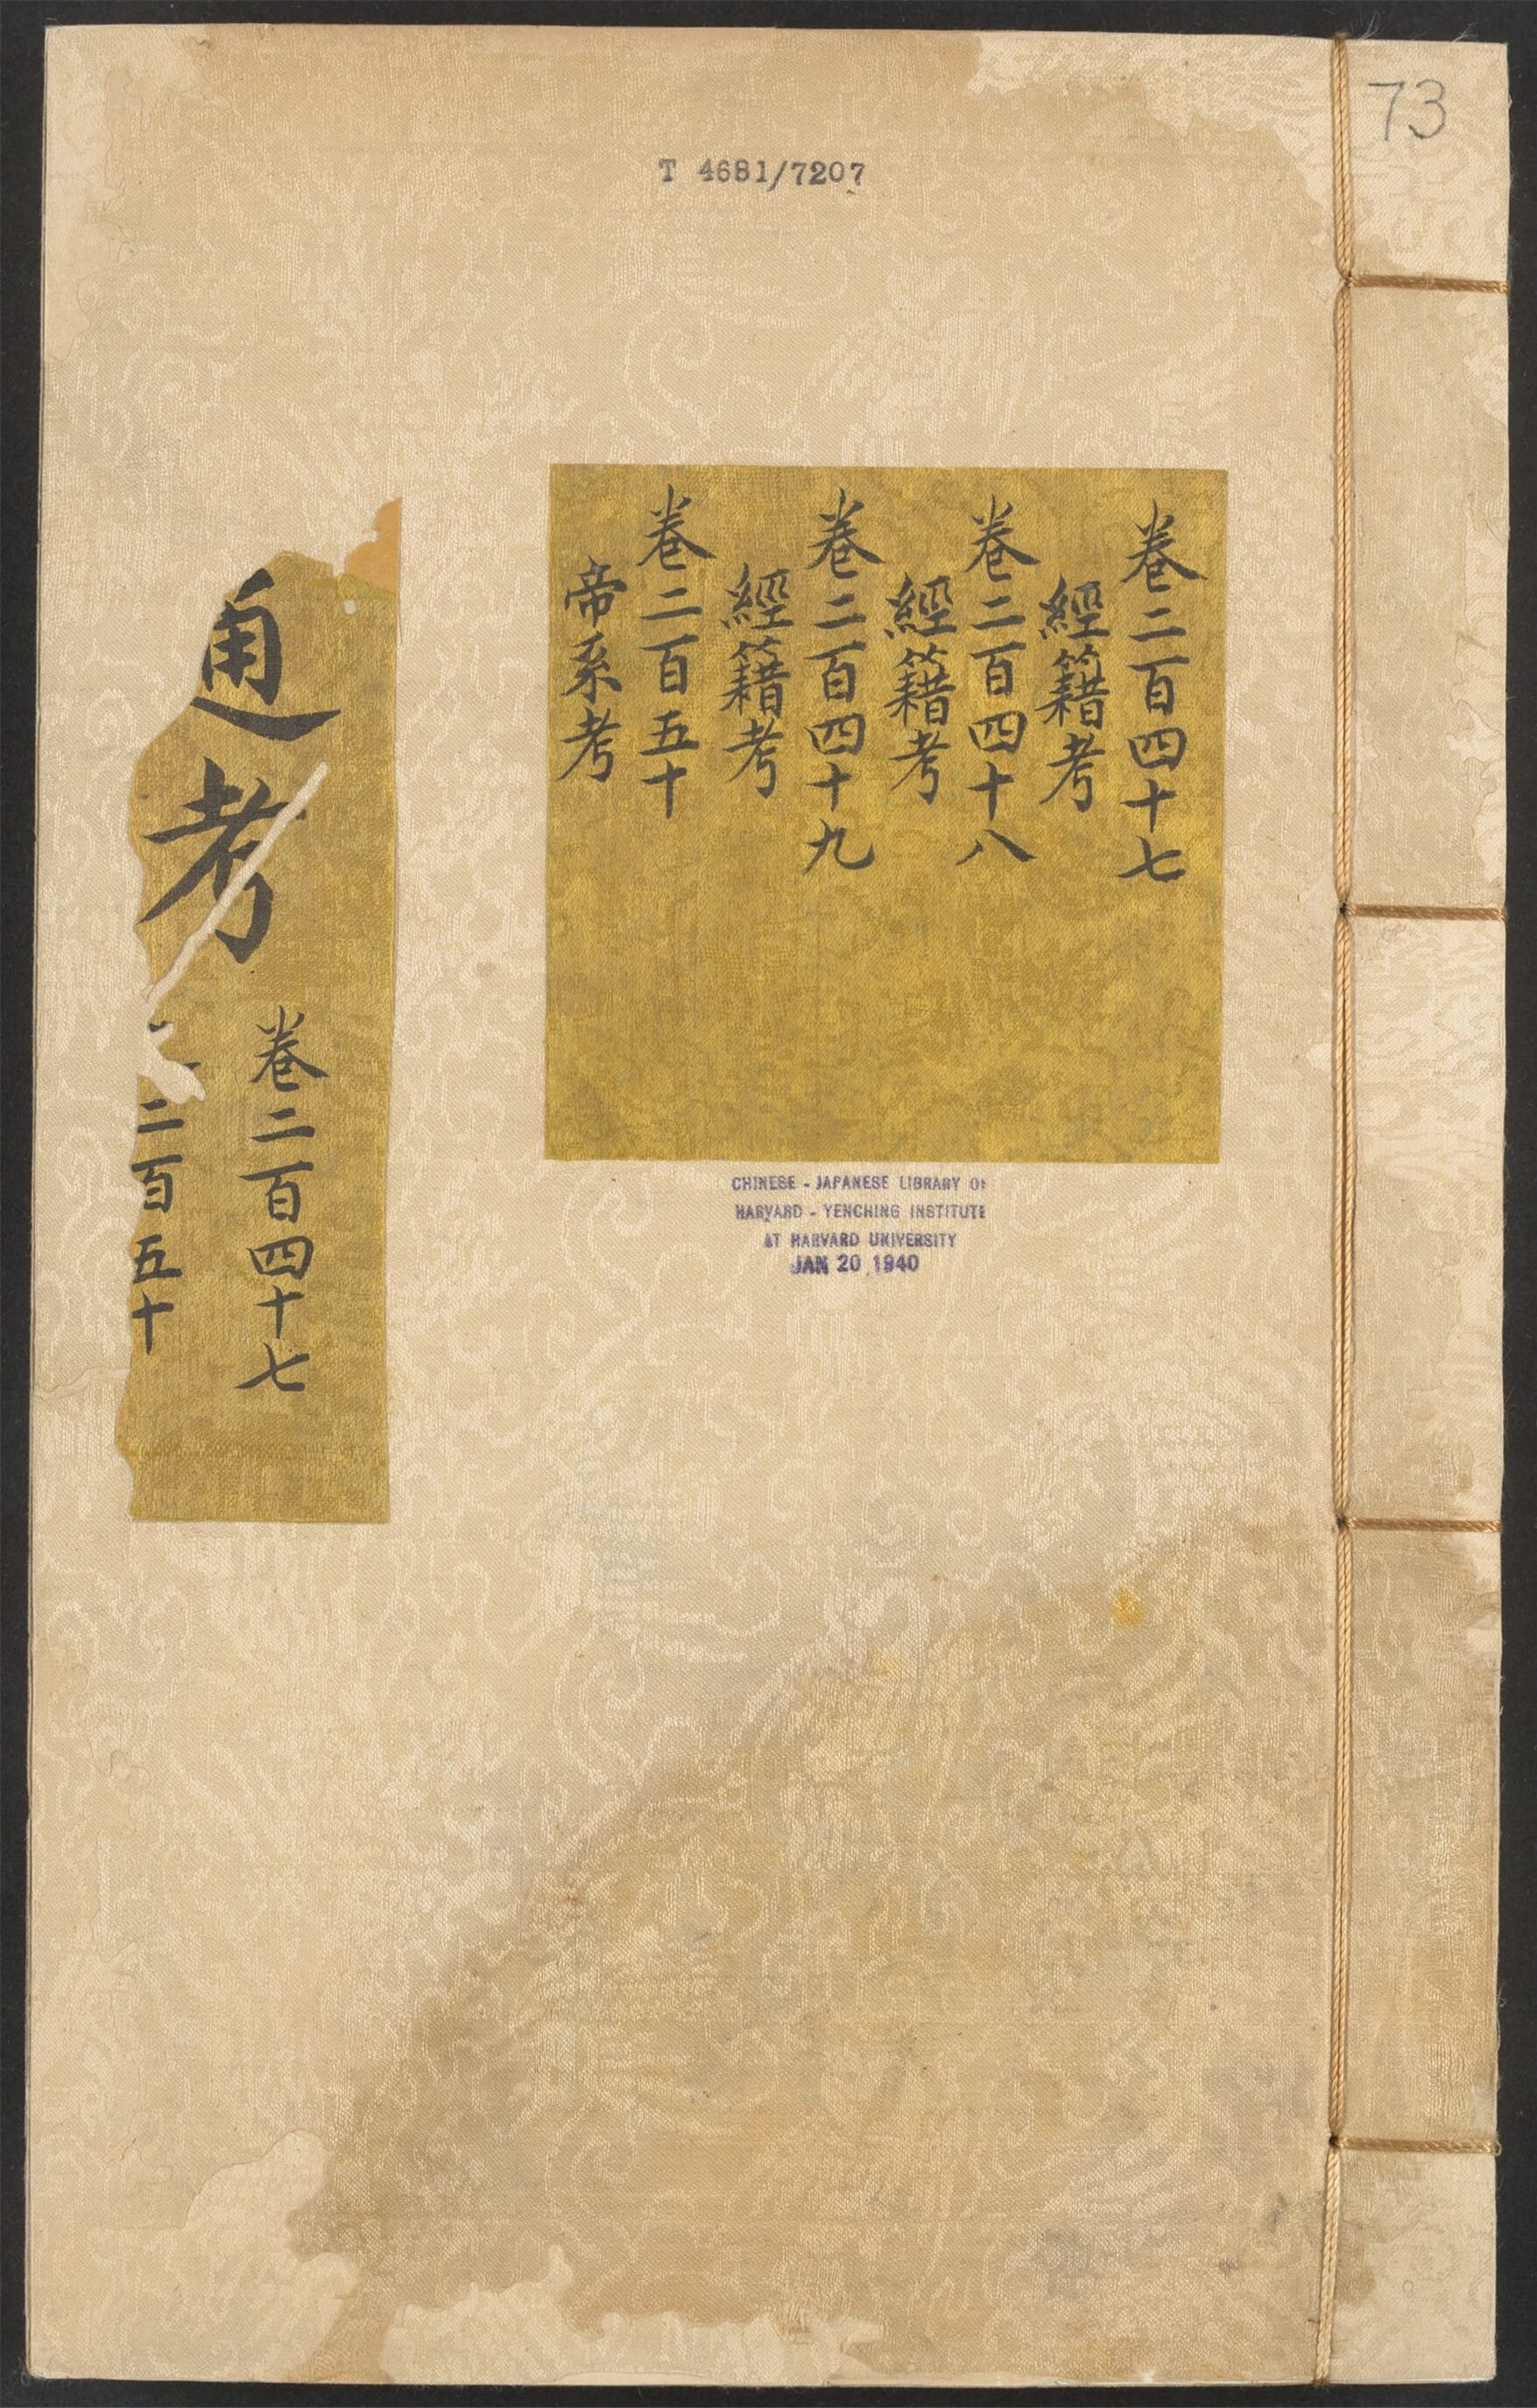 73
T 4681/7207
卷二百四十七
經籍考
卷二百四十八
經籍考
卷二百四十九
經籍考
卷二百五十
帝系考
通考
卷二百四十七
二百五十
CHINESE - JAPANESE LIBRARY OF
HARVARD - YENCHING INSTITUTE
AT HARVARD UNIVERSITY
JAN 20 1940